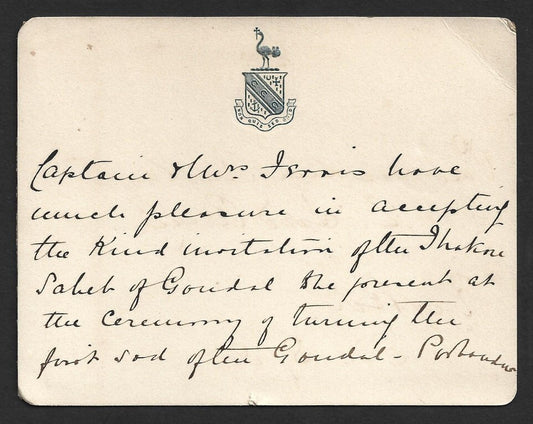 Captain & Mrs have
much pleasure in accepting
the Kind invitation of the Thakore
Saheb of Gondal to be present at
the Ceremony of turning the
first sod of the Gondal - Porbandar